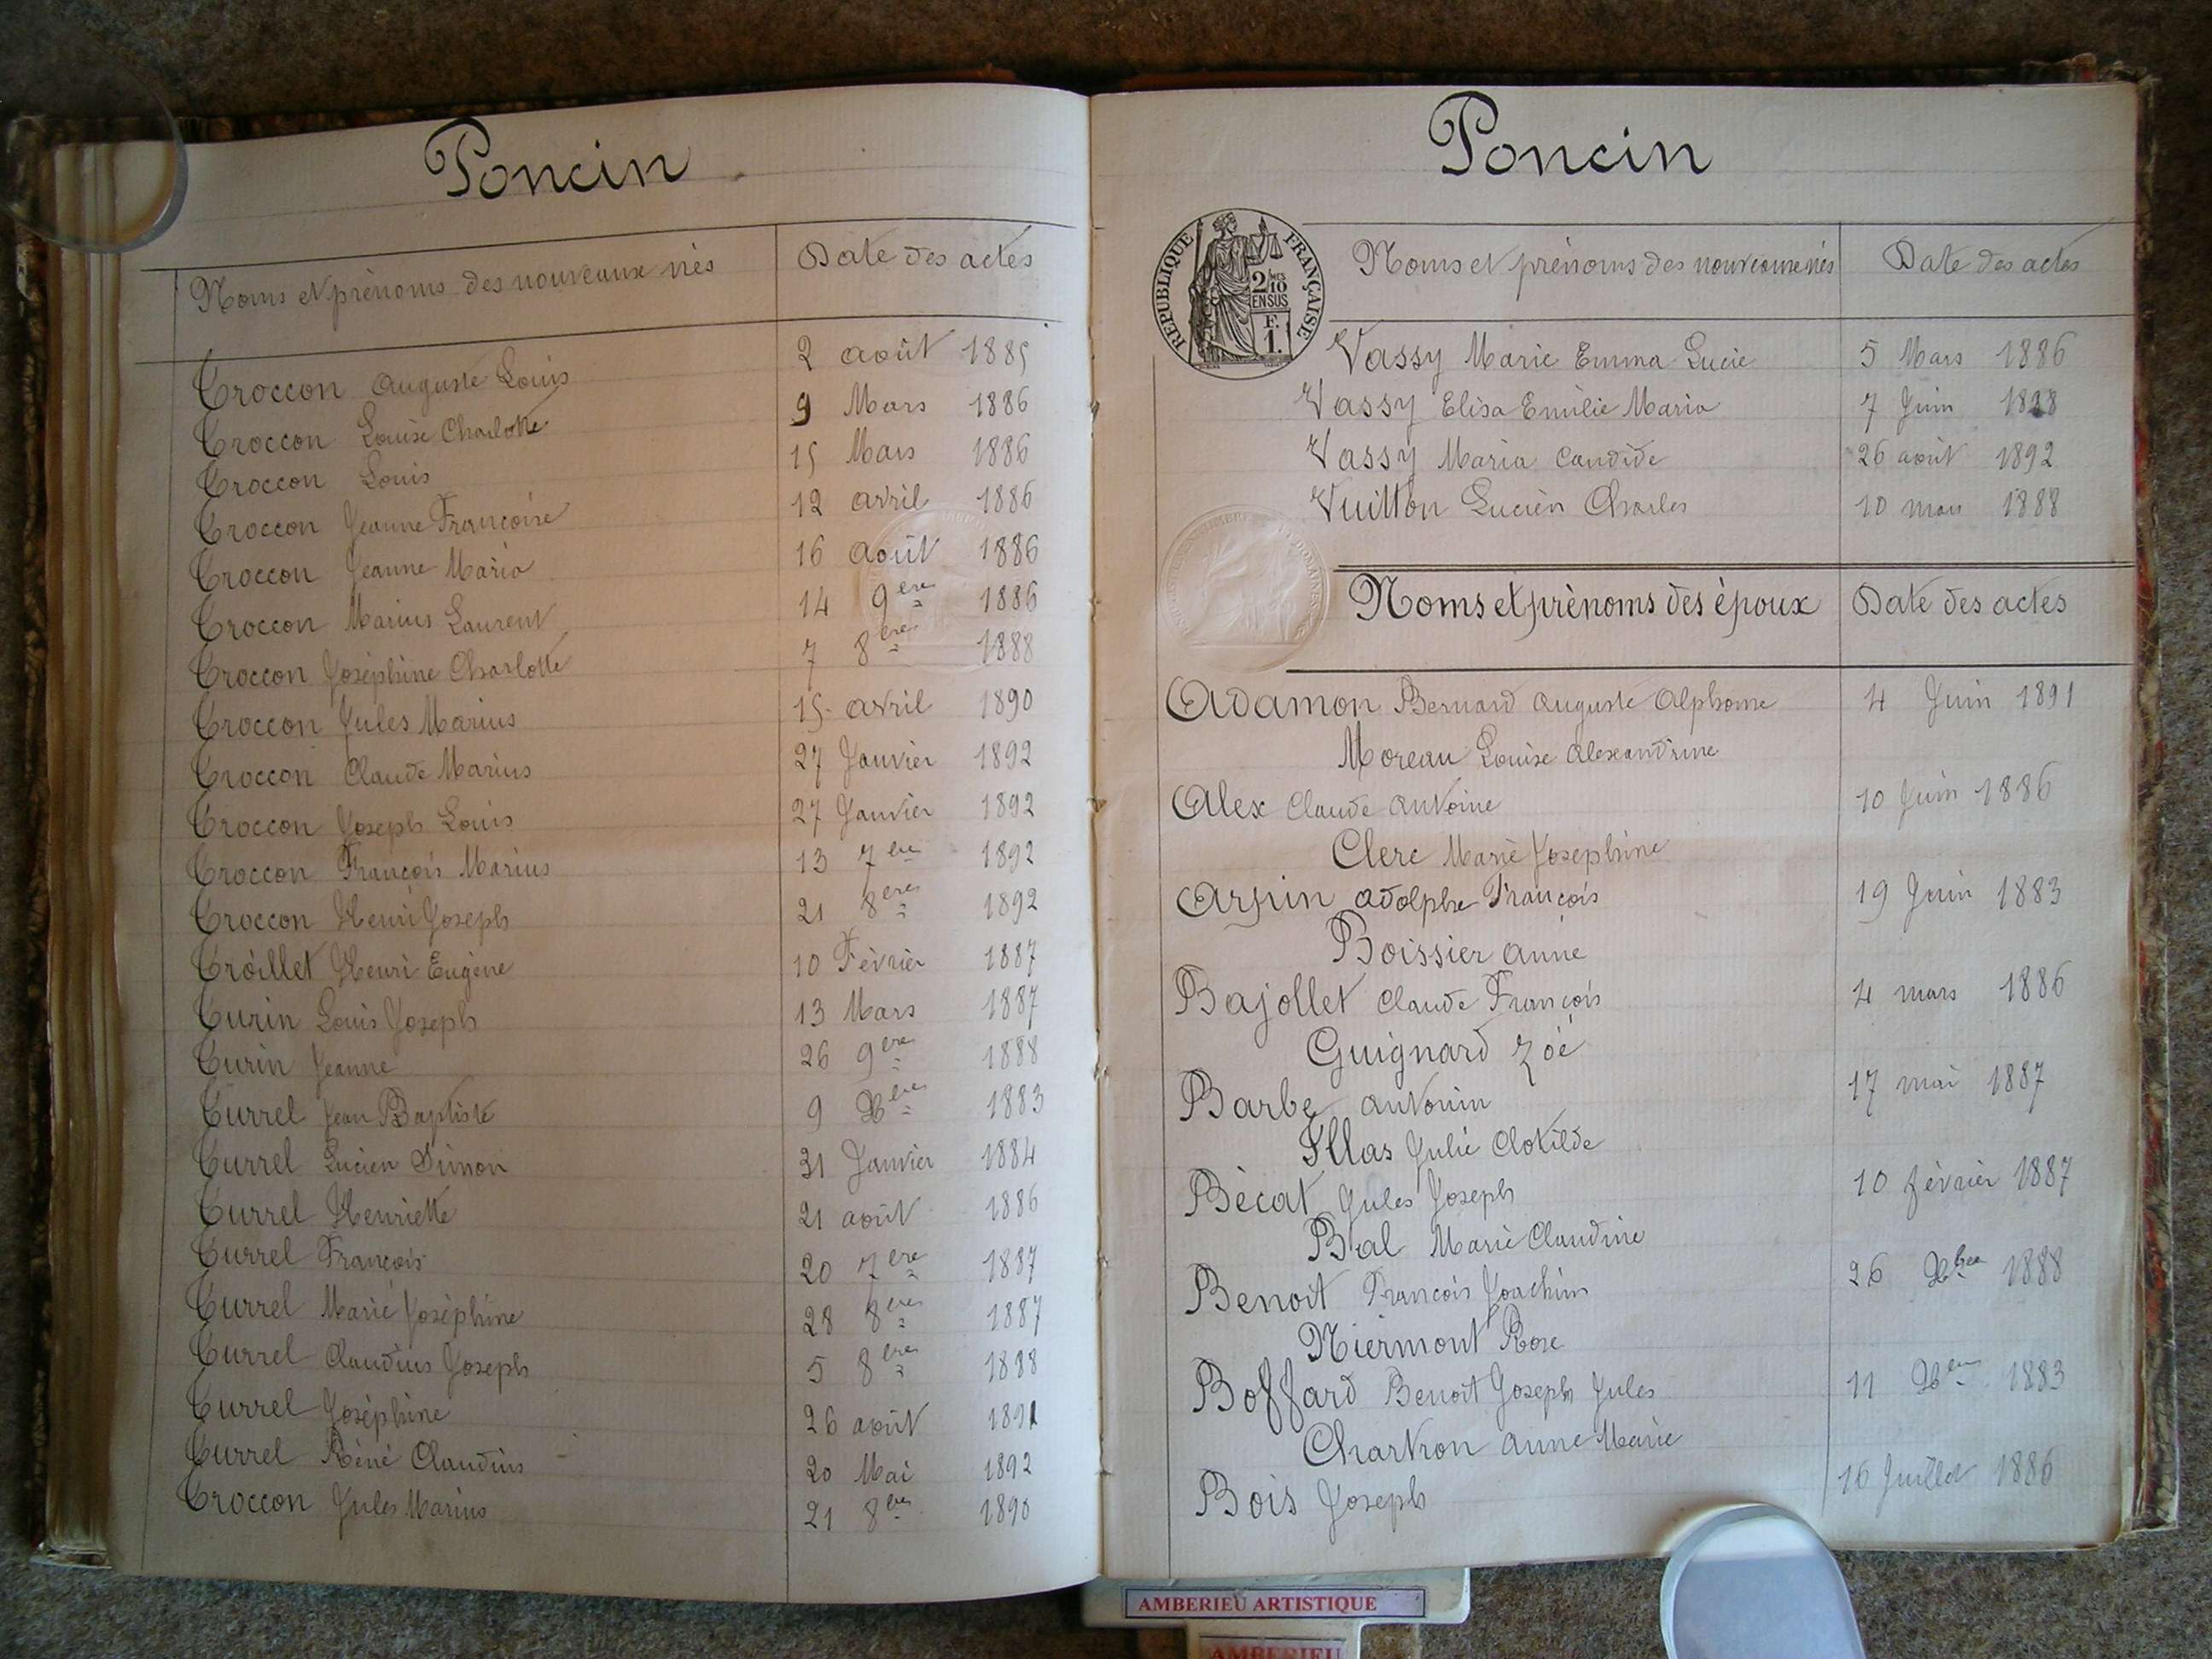 Poncin
Noms et prénoms des nouveaux nés Date des actes
Troccon Auguste Louis 2 août 1885
Troccon Louise Charlotte 9 Mars 1886
Troccon Louis 15 Mars 1886
Troccon Jeanne Françoise 12 avril 1886
Troccon Jeanne Maria 16 août 1886
Troccon Marius Laurent 14 9bre 1886
Troccon Joséphine Charlotte 7 8bre 1888
Troccon Jules Marius 15 avril 1890
Troccon Claude Marius 27 Janvier 1892
Troccon Joseph Louis 27 Janvier 1892
Troccon François Marius 13 7bre 1892
Troccon Henri Joseph 21 8bre 1892
Tröillet Henri Eugène 10 Février 1887
Turin Louis Joseph 13 Mars 1887
Turin Jeanne 26 9bre 1888
Turrel Jean Baptiste 9 Xbre 1883
Turrel Lucien Simon 31 Janvier 1884
Turrel Henriette 21 août 1886
Turrel François 20 7bre 1887
Turrel Marie Joséphine 28 8bre 1887
Turrel Claudius Joseph 5 8bre 1888
Turrel Joséphine 26 août 1891
Turrel Réné Claudius 20 Mai 1892
Troccon Jules Marius 21 8bre 1890
Poncin
RÉPUBLIQUE FRANÇAISE
2/10
EN SUS
F.
1.
Noms et prénoms des nouveaux nés Date des actes
Vassy Marie Emma Lucie 5 Mars 1886
Vassy Elisa Emilie Maria 7 Juin
Vassy Maria Candide 26 août 1892
Vuitton Lucien Charles 10 mars 1888
Noms et prénoms des époux Date des actes
Adamon Bernard Auguste Alphonse 4 Juin 1891
Moreau Louise Alexandrine
Alex Claude Antoine 10 Juin 1886
Clerc Marie Joséphine
Arpin Adolphe François 19 Juin 1883
Boissier Anne
Bajollet Claude François 4 mars 1886
Guignard Zoé
Barbe Antonin 17 mai 1887
Illas Julie Clotilde
Bécat Jules Joseph 10 février 1887
Bal Marie Claudine
Benoit François Joachim 26 Xbre 1888
Niermont Rose
Boffard Benoit Joseph Jules 11 Xbre 1883
Chartron Anne Marie
Bois Joseph 16 Juillet 1886
AMBERIEU ARTISTIQUE
AMBERIEU